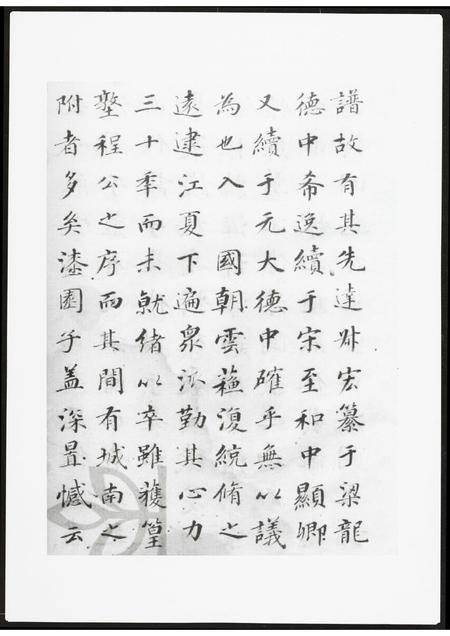 譜故有其先達叔宏纂于梁龍
德中希逸續于宋至和中顯卿
又續于元大德中確乎無以議
為也入 國朝雲蘓復統脩之
遠建江夏下遍衆派勤其心力
三十年而未就緒以卒雖蒦篁
墪程公之序而其間有城南之
附者多矣漆園子盖深置憾云